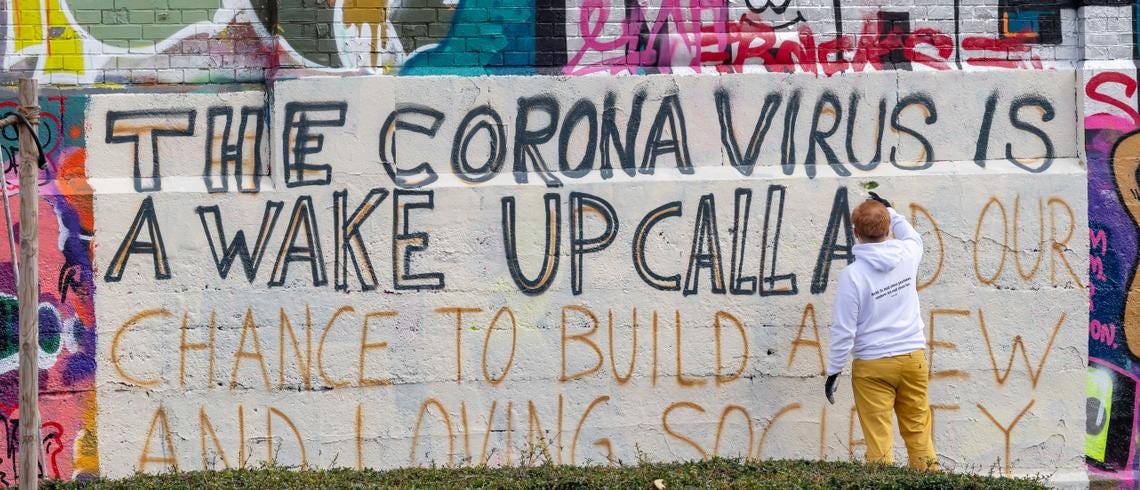 THE CORONA VIRUS IS
A WAKE UP CALL A D OUR
CHANCE TO BUILD A EW
AND LOVING SOCIETY